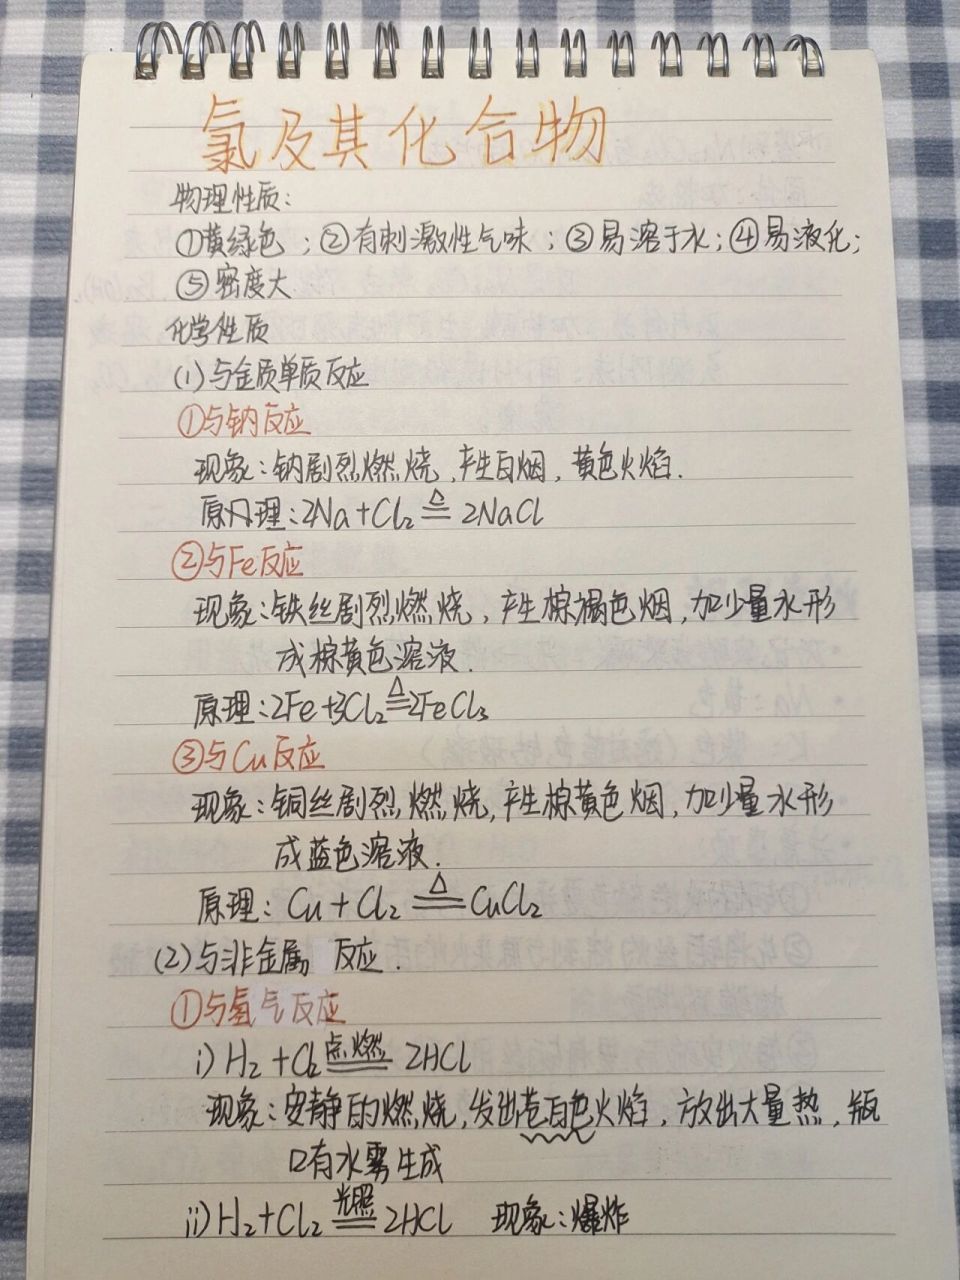 氯及其化合物
物理性质:
①黄绿色;②有刺激性气味;③易溶于水;④易液化;
⑤密度大
化学性质
(1)与金质单质反应
①与钠反应
现象:钠剧烈燃烧,产生白烟,黄色火焰.
原理:2Na+Cl₂ ≜ 2NaCl
②与Fe反应
现象:铁丝剧烈燃烧,产生棕褐色烟,加少量水形
成棕黄色溶液.
原理:2Fe+3Cl₂ ≜ 2FeCl₃
③与Cu反应
现象:铜丝剧烈燃烧,产生棕黄色烟,加少量水形
成蓝色溶液.
原理:Cu+Cl₂ ≜ CuCl₂
(2)与非金属 反应.
①与氢气反应
i)H₂+Cl₂ 点燃 == 2HCl
现象:安静的燃烧,发出苍白色火焰,放出大量热,瓶
口有水雾生成
ii)H₂+Cl₂ 光照 == 2HCl 现象:爆炸